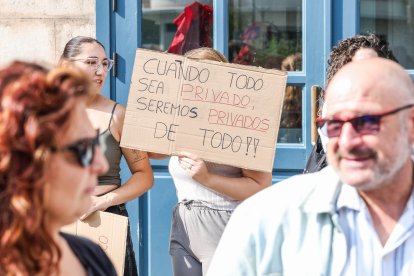 CUANDO TODO
SEA PRIVADO,
SEREMOS PRIVADOS
DE TODO!!